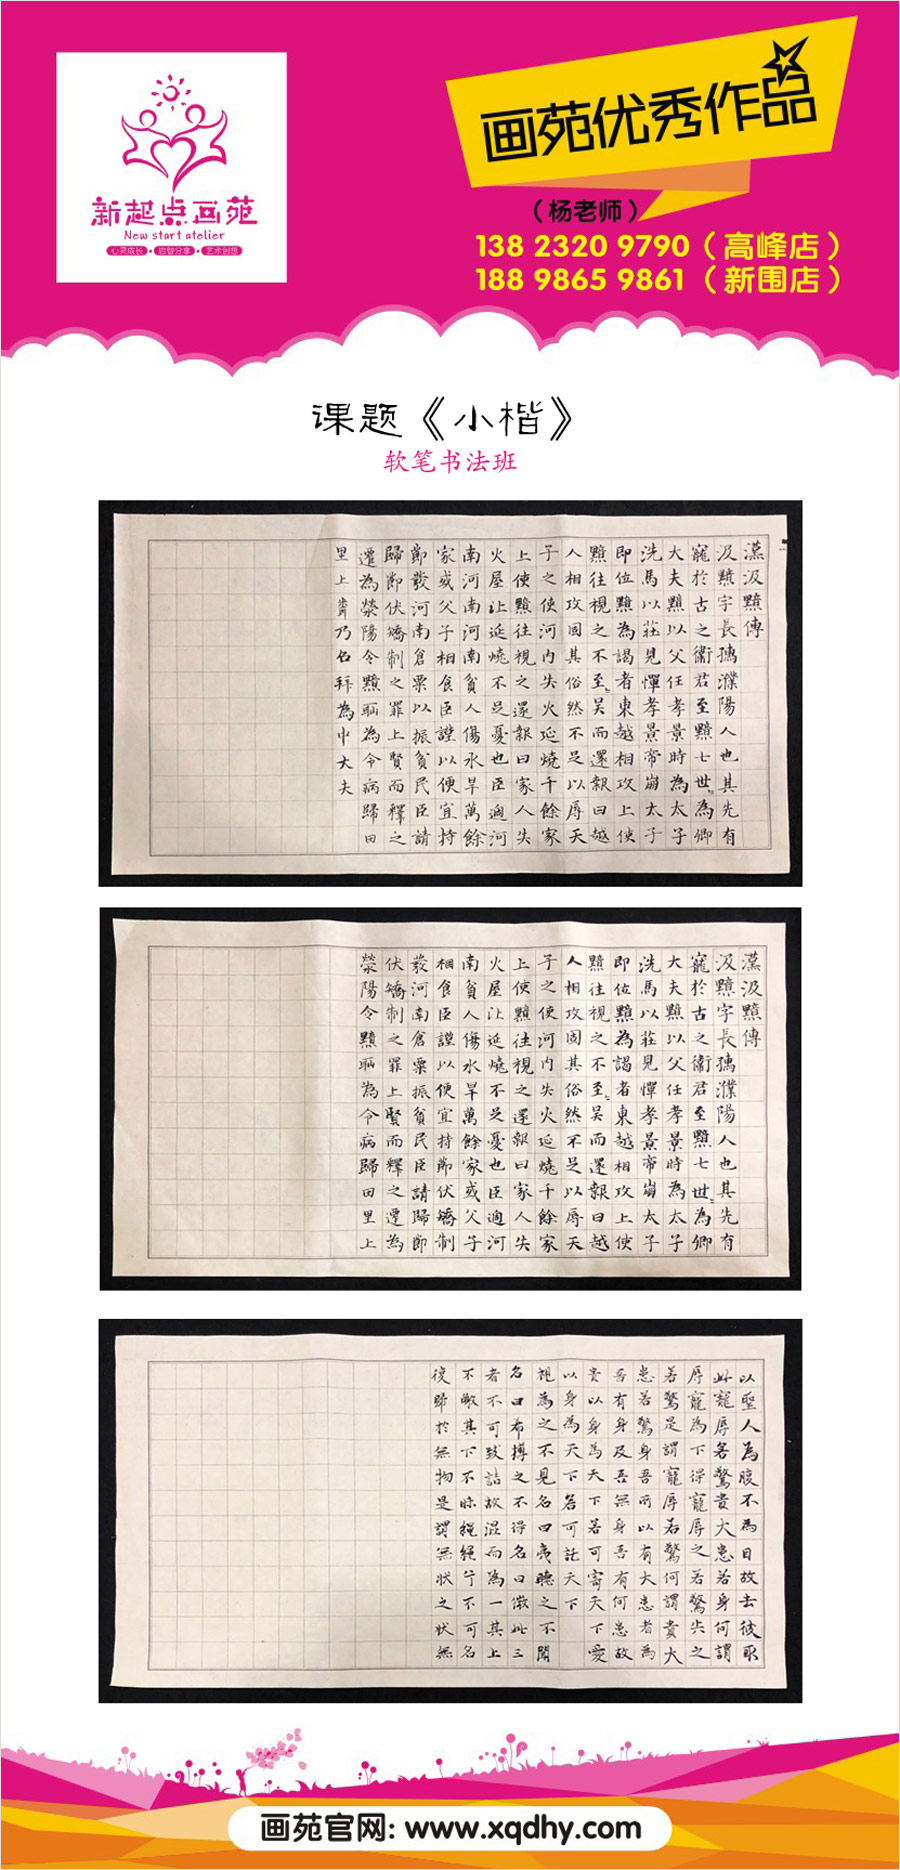 新起点画苑
New start atelier
心灵成长·启智分享·艺术创想
画苑优秀作品
(杨老师)
138 2320 9790(高峰店)
188 9865 9861(新围店)
课题《小楷》
软笔书法班
漢汲黯傳
汲黯字長孺濮陽人也其先有
寵於古之衛君至黯七世為卿
大夫黯以父任孝景時為太子
洗馬以莊見憚孝景帝崩太子
即位黯為謁者東越相攻上使
黯往視之不至吳而還報曰越
人相攻固其俗然不足以辱天
子之使河內失火延燒千餘家
上使黯往視之還報曰家人失
火屋比延燒不足憂也臣過河
南河南河南貧人傷水旱萬餘
家或父子相食臣謹以便宜持
節發河南倉粟以振貧民臣請
歸節伏矯制之罪上賢而釋之
遷為滎陽令黯恥為令病歸田
里上乃召拜為中大夫
漢汲黯傳
汲黯字長孺濮陽人也其先有
寵於古之衛君至黯七世為卿
大夫黯以父任孝景時為太子
洗馬以莊見憚孝景帝崩太子
即位黯為謁者東越相攻上使
黯往視之不至吳而還報曰越
人相攻固其俗然不足以辱天
子之使河內失火延燒千餘家
上使黯往視之還報曰家人失
火屋比延燒不足憂也臣過河
南貧人傷水旱萬餘家或父子
相食臣謹以便宜持節伏矯制
發河南倉粟振貧民臣請歸節
伏矯制之罪上賢而釋之遷為
滎陽令黯恥為令病歸田里上
以聖人為腹不為目故去彼取
此寵辱若驚貴大患若身何謂
辱寵為下得寵辱之若驚失之
若驚是謂寵辱若驚何謂貴大
患若驚身吾所以有大患者為
吾有身及吾無身吾有何患故
貴以身為天下若可寄天下愛
以身為天下若可託天下
視為之不見名曰夷聽之不聞
名曰希搏之不得名曰微此三
者不可致詰故混而為一其上
不皦其下不昧繩繩兮不可名
復歸於無物是謂無狀之狀無
画苑官网: www.xqdhy.com